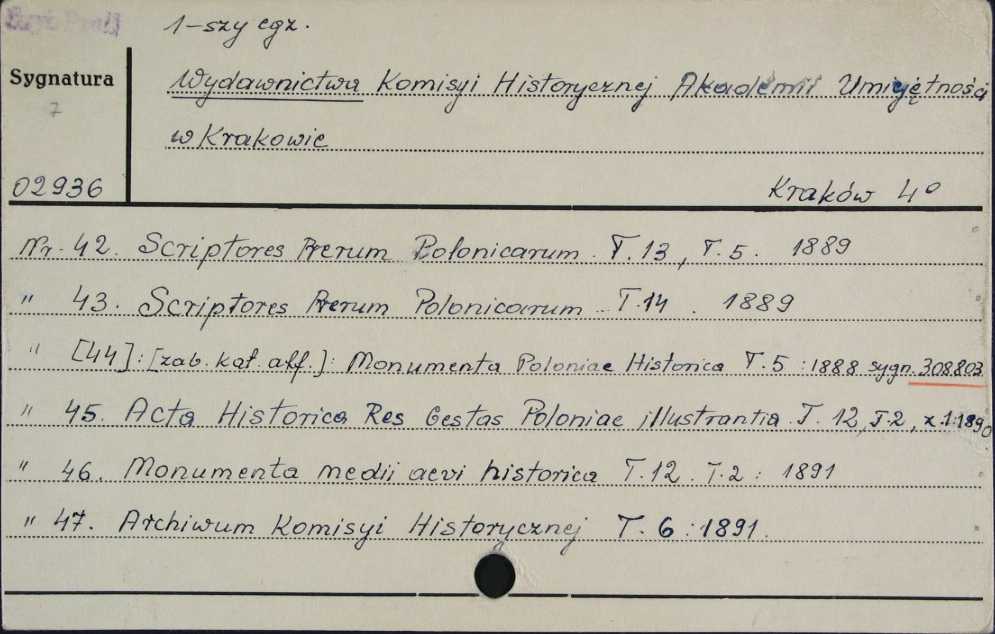 1-szy egz.
Sygnatura
Wydawnictwa Komisyi Historycznej Akademii Umiejętności
7
w Krakowie
02936
Kraków 4°
Nr. 42. Scriptores Rerum Polonicarum T. 13, T. 5. 1889
" 43. Scriptores Rerum Polonicarum T. 14. 1889
" [44]: [zob. kat. alf.]: Monumenta Poloniae Historica T. 5 : 1888 sygn. 308803
" 45. Acta Historica Res Gestas Poloniae illustrantia T. 12, T. 2, z. 1: 1890
" 46. Monumenta medii aevi historica T. 12. T. 2 : 1891
" 47. Archiwum Komisyi Historycznej T. 6 : 1891.